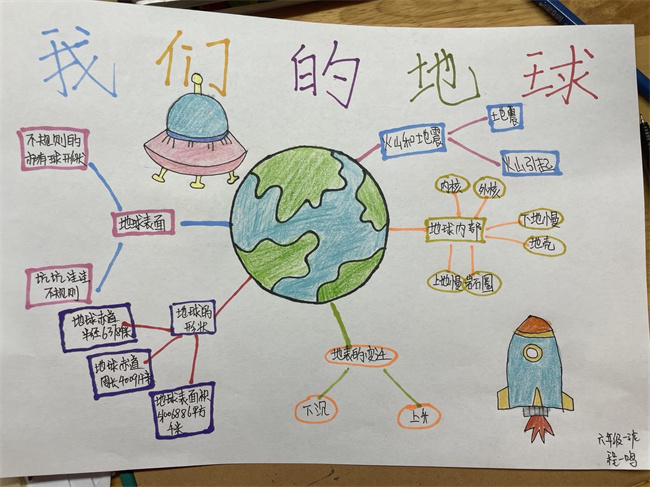 我们的地球
不规则的
球形状
地球表面
坑坑洼洼
不规则
地球的
形状
地球赤道
地球赤道
地球表面积
火山和地震
地震
火山引起
内核
外核
地球内部
下地慢
地壳
上地慢
岩石圈
地表的变化
下沉
上升
六年级一班
程一鸣